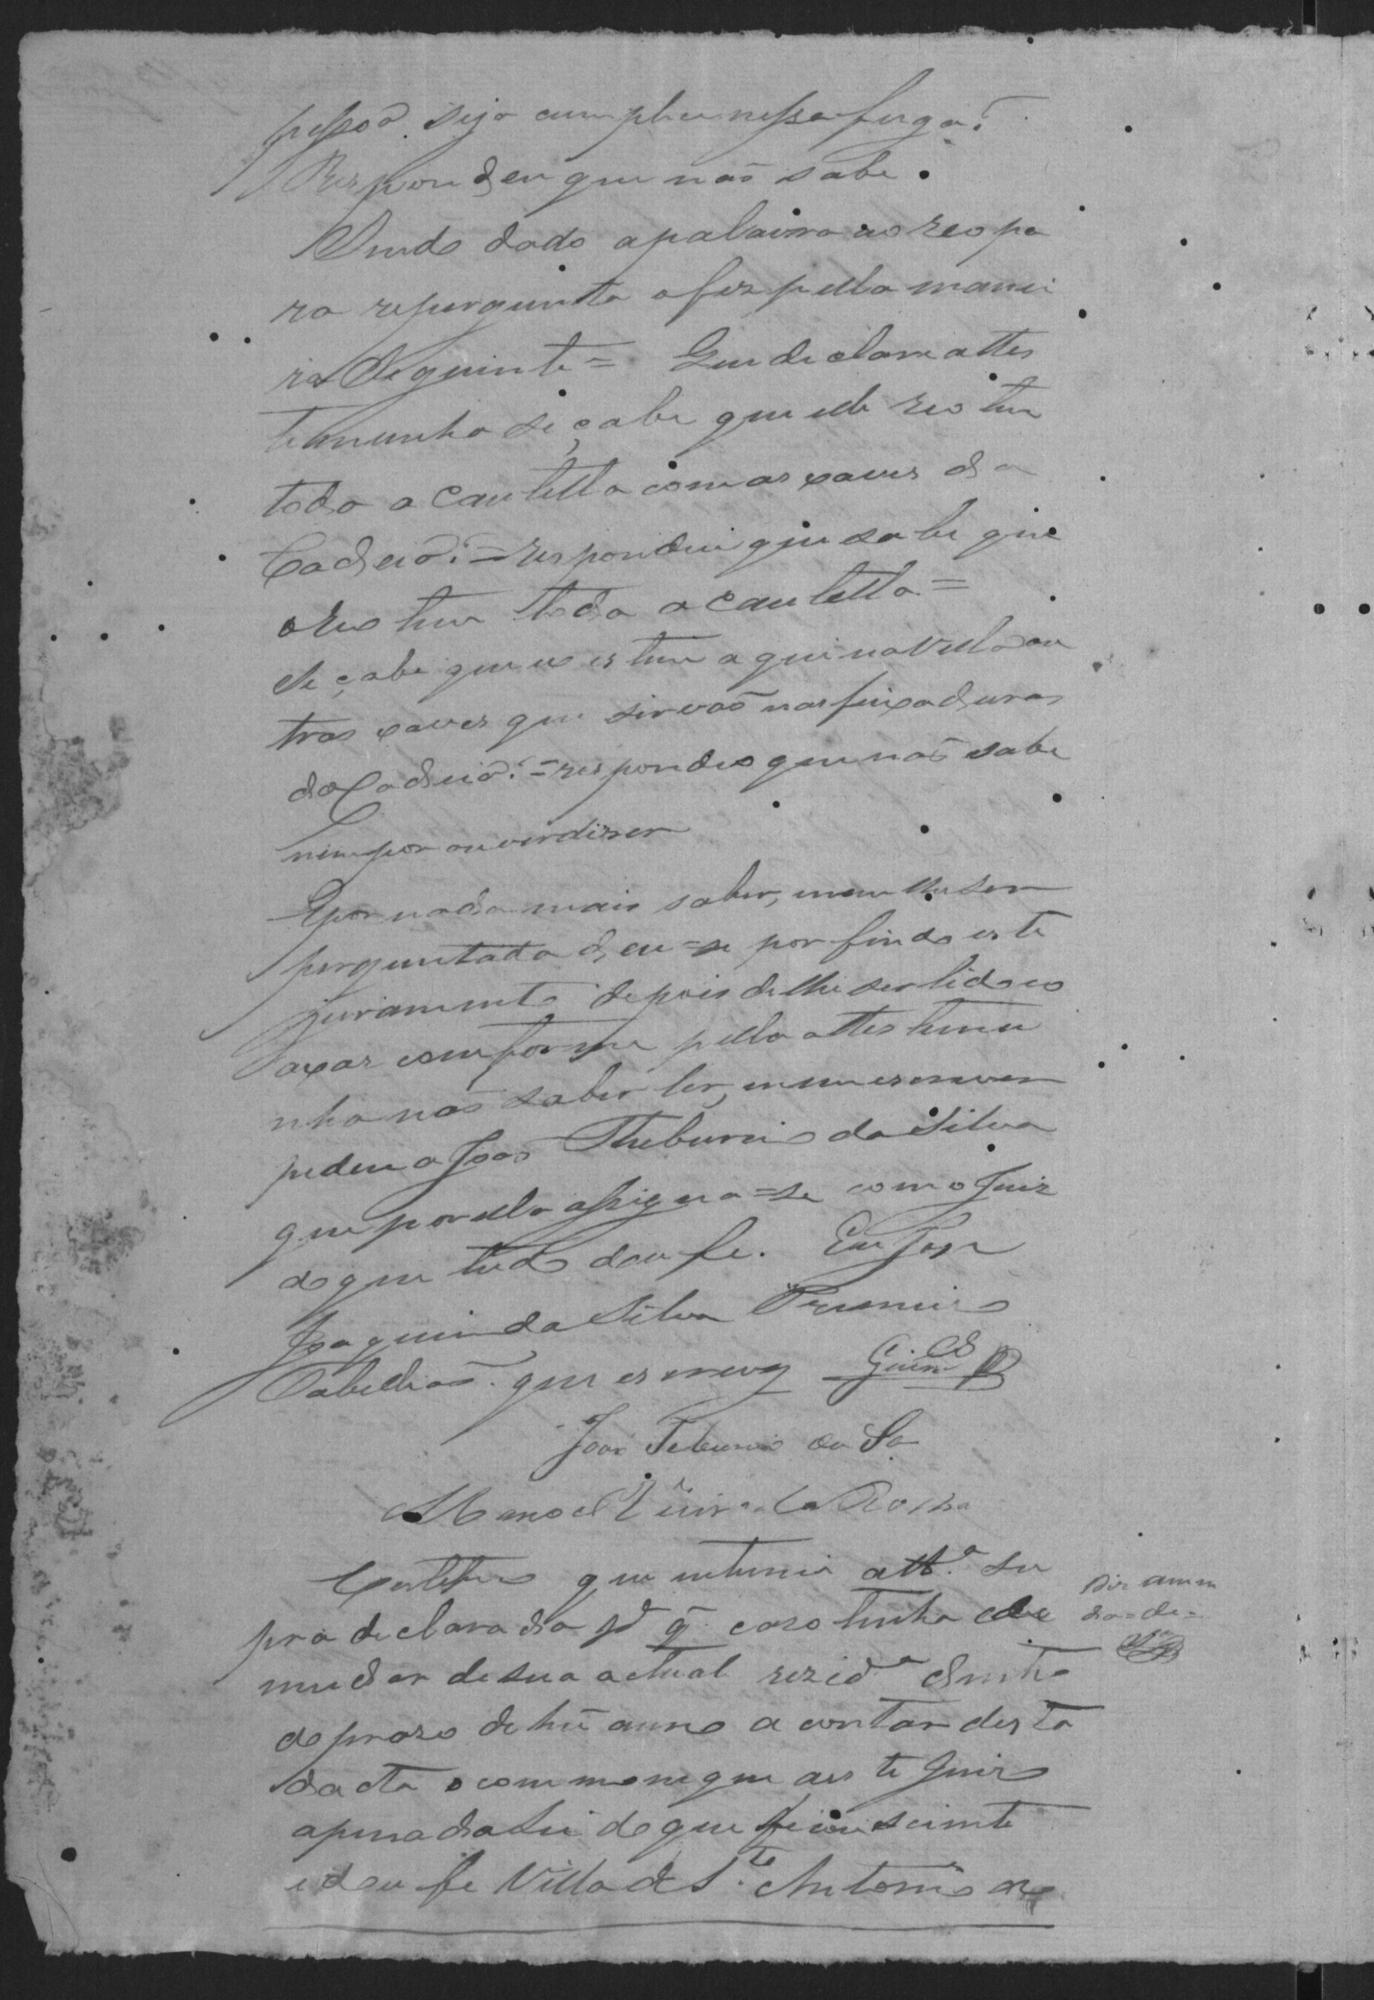 pessoa seja cumplice nessa fuga?
Respondeu que não sabe.
Sendo dado apalavra ao reo pa
ra repergunta o fez pella manei
ra Seguinte = Que declare attes
temunha se çabe que elle reo tem
toda a cautella com as xaves da
Cadeia? = respondeu que sabe que
o reo tem toda a cautella =
Se çabe que existem aqui na Villa ou
tras xaves que sirvão nas feixaduras
da Cadeia? = respondeo que não sabe
nem por ouvir dizer
E por nada mais saber, nem lhe ser
perguntado deu=se por findo este
juramento depois de lhe ser lido eo
axar comforme pella attestemu
nha não saber ler, nem escrever
pedeu a João Theburcio da Silva
que por ella assigna=se com o Juiz
do que tudo dou fe. Eu Jose
Joaquim da Silva Premeiro
Tabellião que escrevy
João Teburcio da Sa
Manoel Vieira da Rocha
Certefico que entimei att.ª su
pra declarada pª q̃ caso tenha de
mudar de sua actual rezidª dentro
do praso de hũ anno a contar desta
dacta o commonique aeste Juizo
apena da Lei do que ficou sciente
edou fe Villa de S.to Antonio